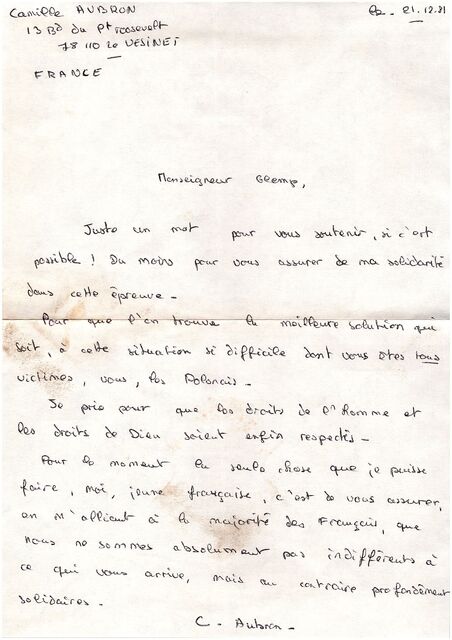 Camille AUBRON
le. 21.12.81
13 Bd du Pt roosevelt
78 110 Le VESINET
FRANCE
Monseigneur Glemp,
Juste un mot pour vous soutenir, si c'est
possible ! Du moins pour vous assurer de ma solidarité
dans cette épreuve -
Pour que l'on trouve la meilleure solution qui
soit, à cette situation si difficile dont vous êtes tous
victimes, vous, les Polonais -
Je prie pour que les droits de l'Homme et
les droits de Dieu soient enfin respectés -
Pour le moment la seule chose que je puisse
faire, moi, jeune française, c'est de vous assurer,
en m'alliant à la majorité des Français, que
nous ne sommes absolument pas indifférents à
ce qui vous arrive, mais au contraire profondément
solidaires -
C - Aubron -